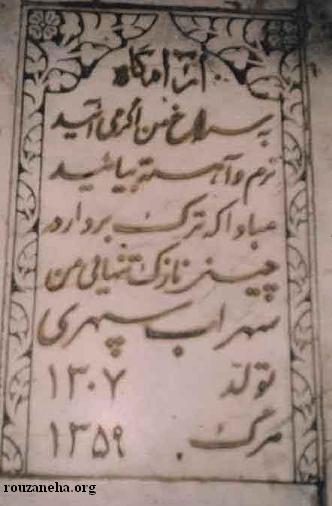 آرامگاه
به سراغ من اگر می آئید
نرم و آهسته بیائید
مبادا که ترک بردارد
چینی نازک تنهائی من
سهراب سپهری
تولد ۱۳۰۷
مرگ ۱۳۵۹
rouzaneha.org